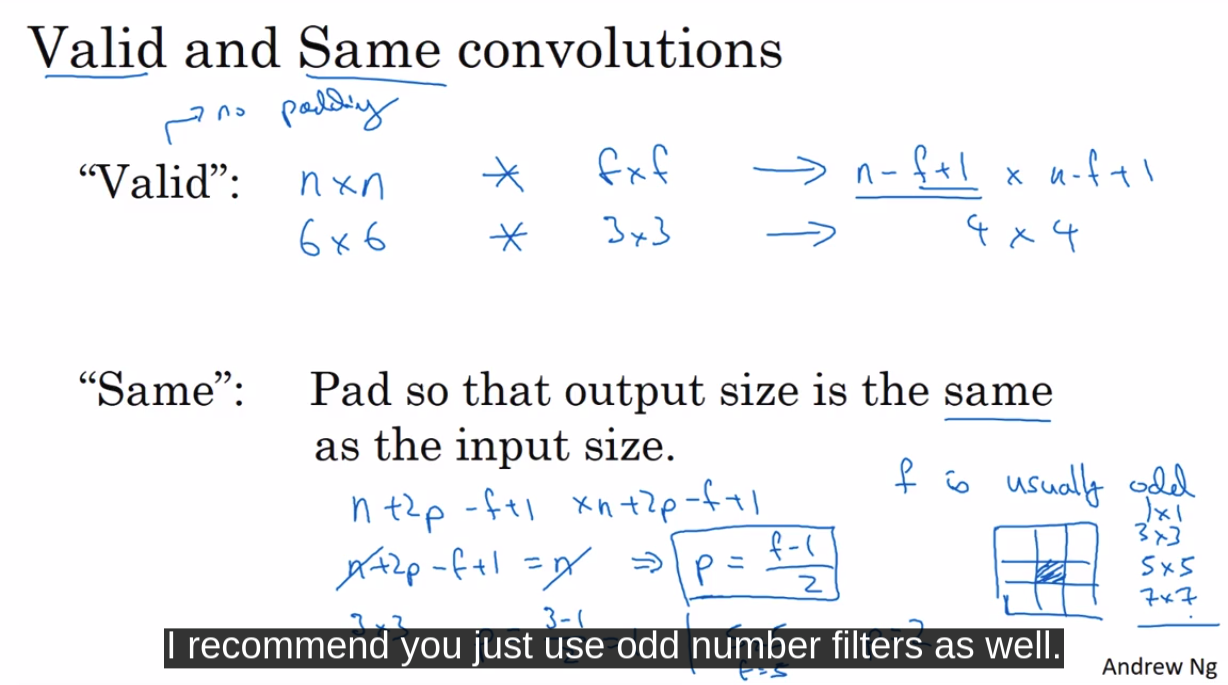 Valid and Same convolutions
→ no padding
“Valid”: n × n * f × f → n - f + 1 × n - f + 1
6 × 6 * 3 × 3 → 4 × 4
“Same”: Pad so that output size is the same
as the input size.
n + 2p - f + 1 × n + 2p - f + 1
n + 2p - f + 1 = n ⇒ p = (f - 1)/2
f is usually odd
1 × 1
3 × 3
5 × 5
7 × 7
3 × 3 3 - 1
f = 5
I recommend you just use odd number filters as well.
Andrew Ng